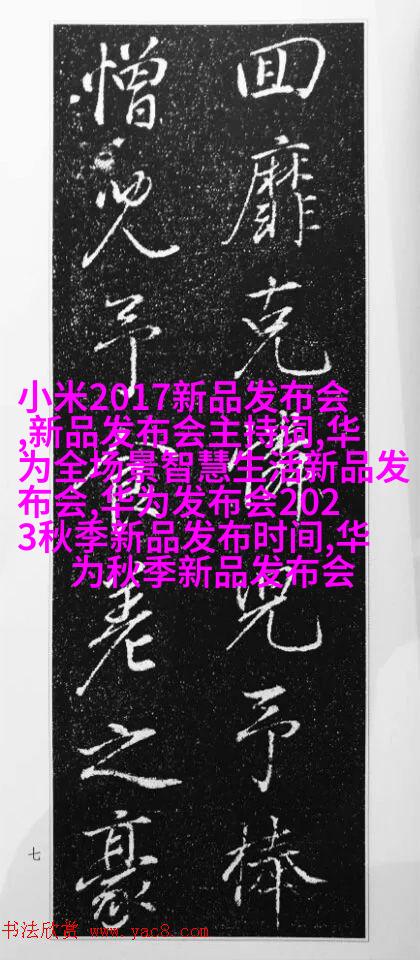 回靡克憐兒予棒
憎予之豪
小米2017新品发布会
,新品发布会主持词,华
为全场景智慧生活新品发
布会,华为发布会202
3秋季新品发布时间,华
为秋季新品发布会
七
书法欣赏 www.yac8.com